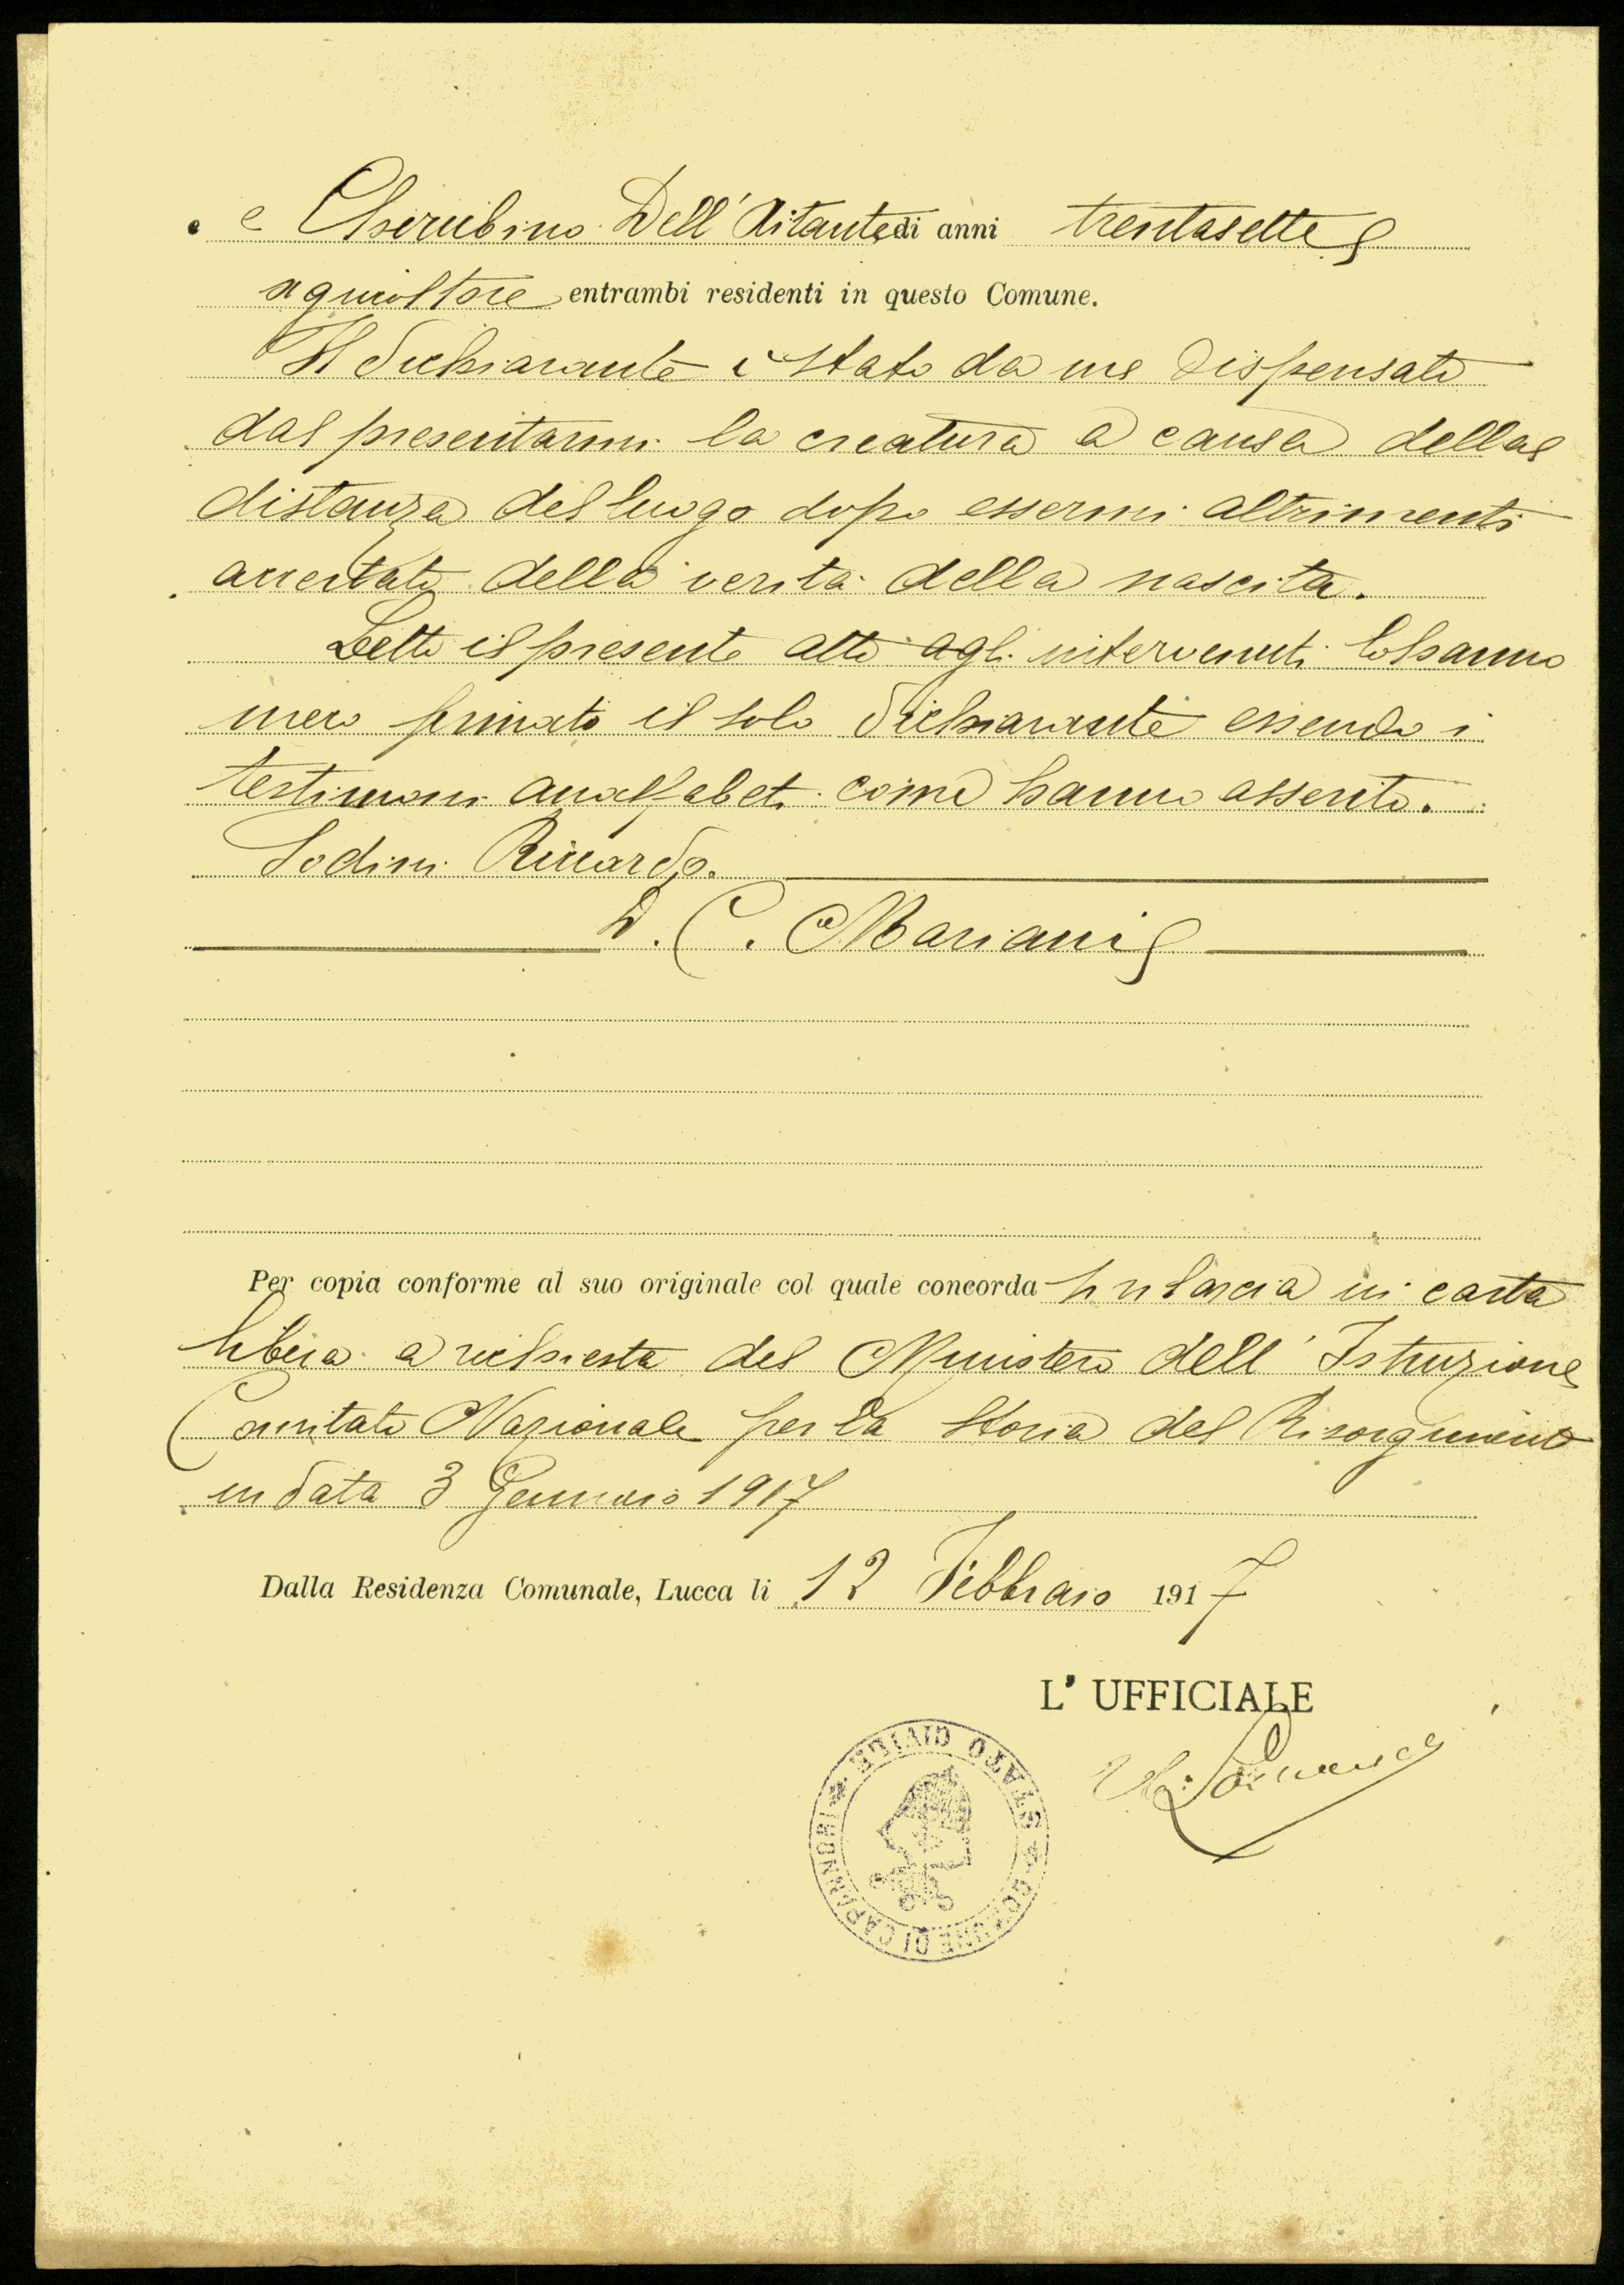 e Cherubino Dell'Aitante di anni trentasette
agricoltore entrambi residenti in questo Comune.
Il dichiarante è stato da me dispensato
dal presentarmi la creatura a causa della
distanza del luogo dopo essermi altrimenti
accertato della verità della nascita.
Letto il presente atto agli intervenuti lo hanno
meco firmato il solo dichiarante essendo i
testimoni analfabeti come hanno asserito.
Sodini Riccardo.
D. C. Mariani
Per copia conforme al suo originale col quale concorda si rilascia in carta
libera a richiesta del Ministero dell'Istruzione
Comitato Nazionale per la Storia del Risorgimento
in data 3 Gennaio 1917
Dalla Residenza Comunale, Lucca li 12 Febbraio 1917
L' UFFICIALE
STATO CIVILE * COMUNE DI CAPANNORI *